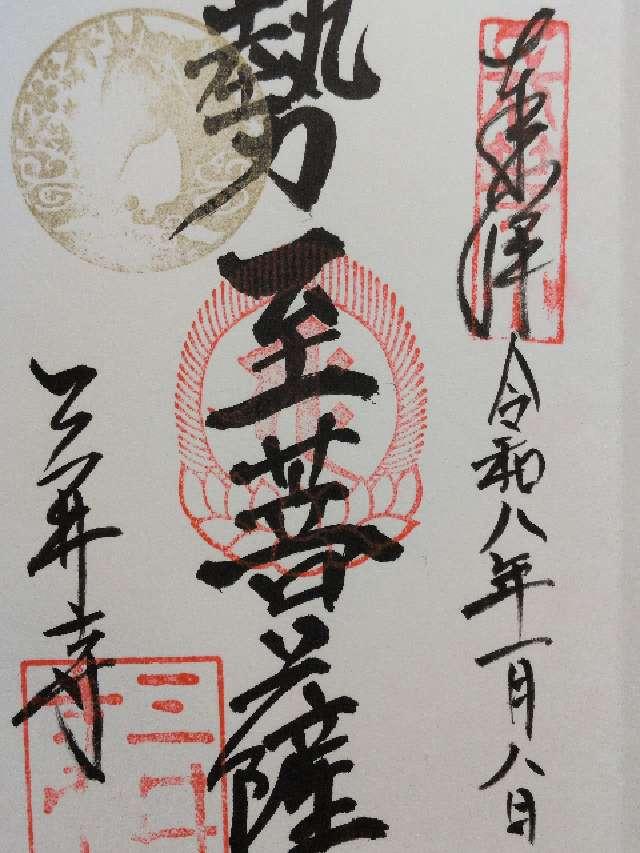 奉拝
令和八年一月八日
勢至菩薩
三井寺